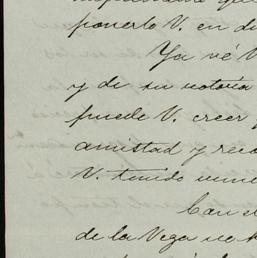 ponerle V. en di
Ya vé V
y de su notoria
puede V. creer
amistad y reco
V. tenido
Con e
de la Vega no h